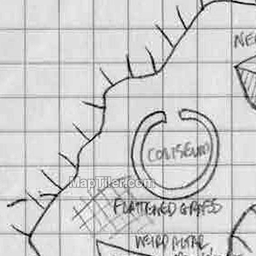 NE
COLISEUM
MapTiler.com
FLATTENED GRASS
WEIRD ALTAR